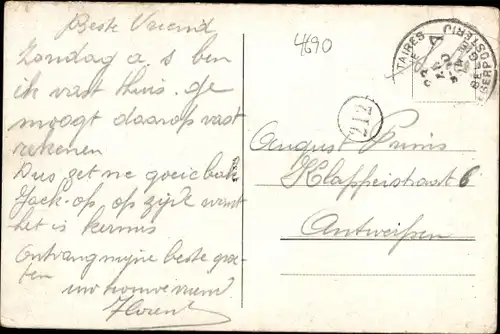 Beste Vriend
Zondag a.s ben
ik vast thuis. ge
moogt daarop vast
rekenen
Dus zet ne goeie bak
Jack-op op zijde want
het is kermis
Ontvang mijne beste groe-
ten
uw trouwe vriend
Florent
4690
TAIRES
POSTERIJ
212
August Prims
Klappeistraat 6
Antwerpen